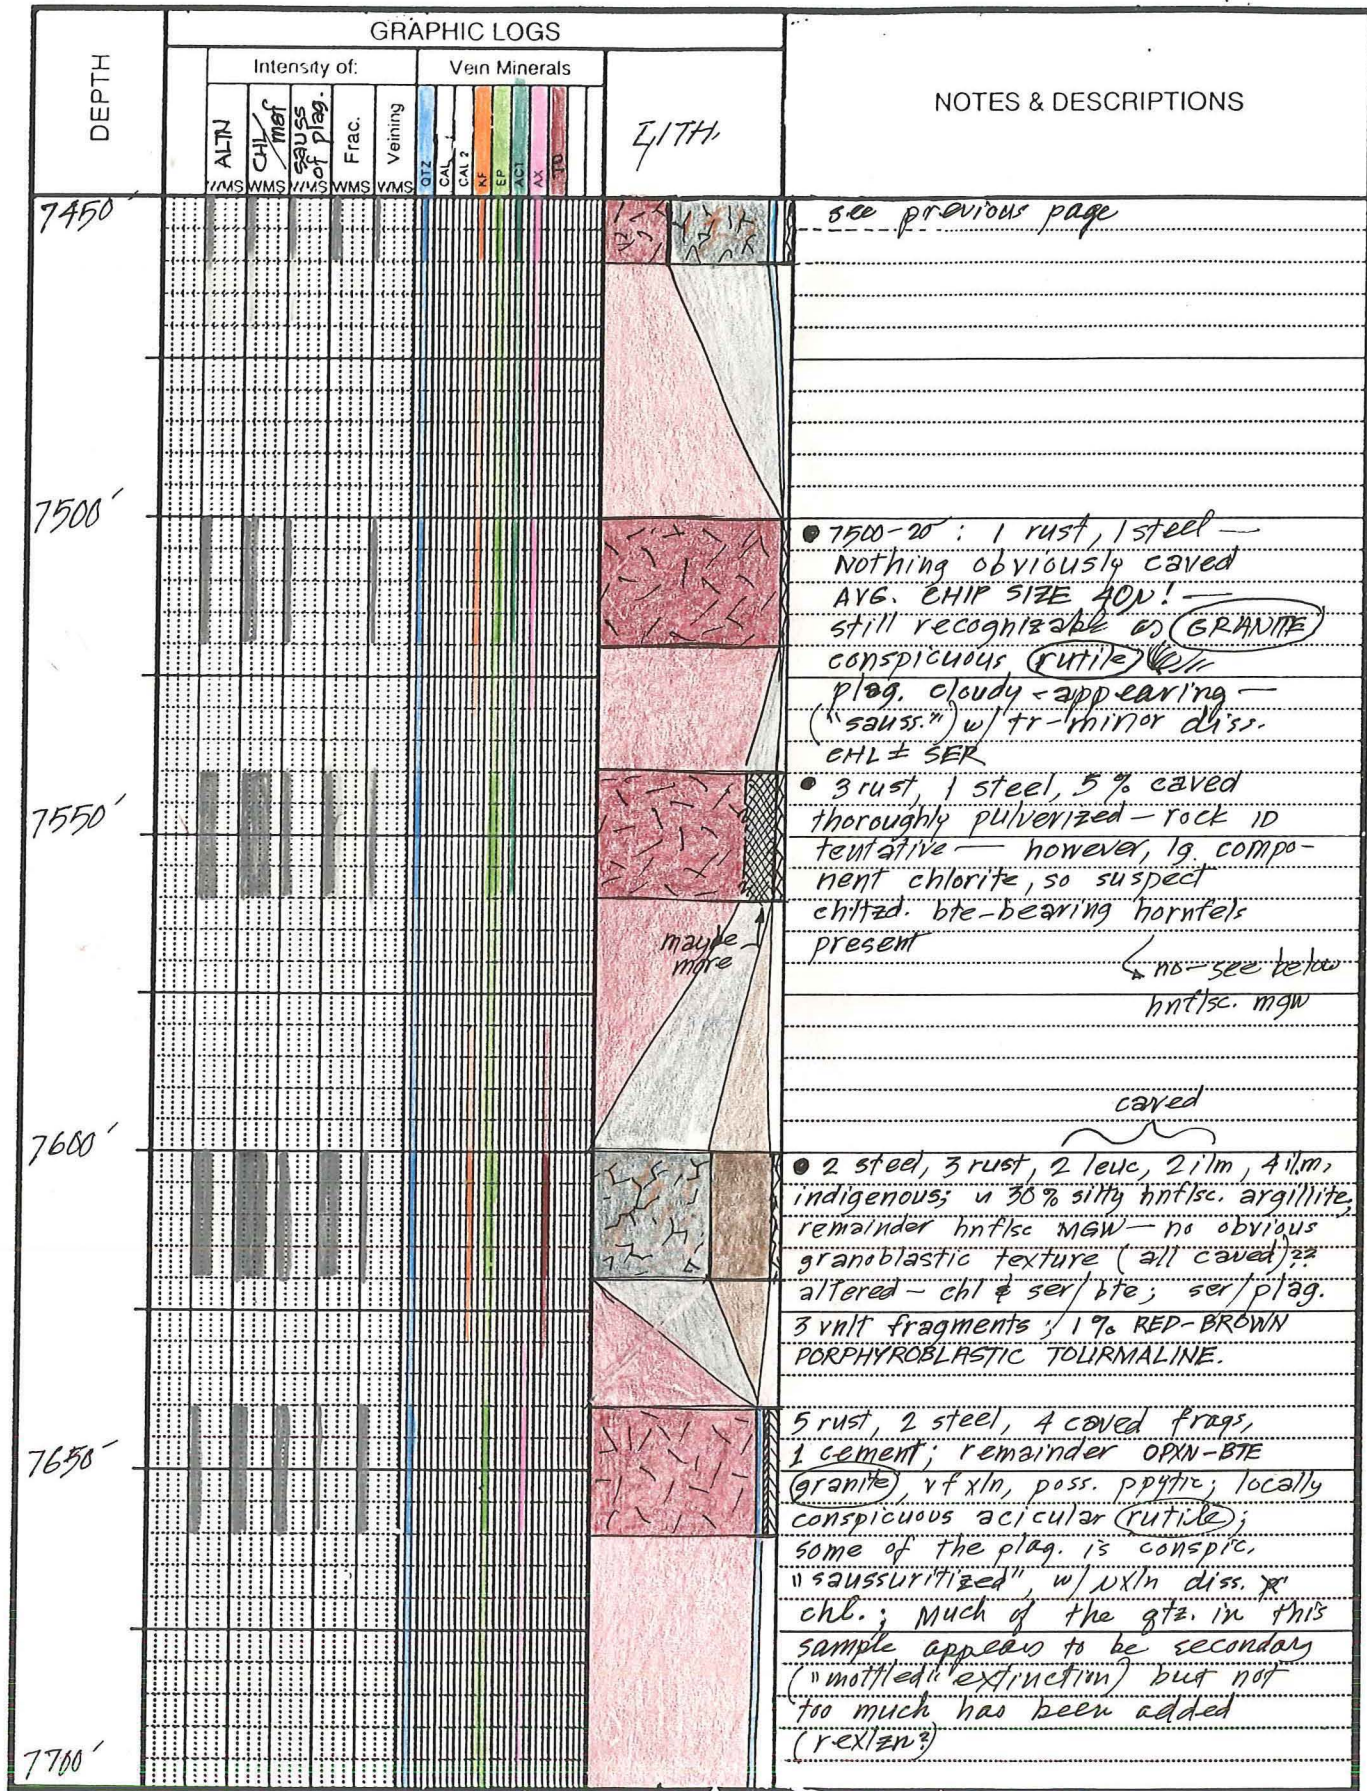 GRAPHIC LOGS
DEPTH
Intensity of:
Vein Minerals
LITH.
NOTES & DESCRIPTIONS
ALTN
CHL/mef
sauss of plag.
Frac.
Veining
WMS WMS WMS WMS WMS
QTZ
CAL 1
CAL 2
KF
EP
ACT
AX
7450'
see previous page
7500'
● 7500-20': 1 rust, 1 steel —
Nothing obviously caved
AVG. CHIP SIZE 40µ! —
still recognizable as GRANITE
conspicuous rutile
plag. cloudy-appearing —
("sauss.") w/ tr-minor diss.
CHL ± SER
● 3 rust, 1 steel, 5% caved
7550'
thoroughly pulverized – rock ID
tentative — however, lg. compo-
nent chlorite, so suspect
chltzd. bte-bearing hornfels
present
maybe
more
no – see below
hnflsc. mgw
caved
7600'
● 2 steel, 3 rust, 2 leuc, 2 ilm, 4 ilm,
indigenous; ~ 30% silty hnflsc. argillite,
remainder hnflsc MGW — no obvious
granoblastic texture (all caved)??
altered – chl & ser/bte; ser/plag.
3 vnlt fragments; 1% RED-BROWN
PORPHYROBLASTIC TOURMALINE.
5 rust, 2 steel, 4 caved frags,
7650'
1 cement; remainder OPXN-BTE
granite, vf xln, poss. ppytic; locally
conspicuous acicular rutile;
some of the plag. is conspic.
"saussuritized", w/ µxln diss.
chl.; Much of the qtz. in this
sample appears to be secondary
("mottled" extinction) but not
too much has been added
(rexlzn?)
7700'